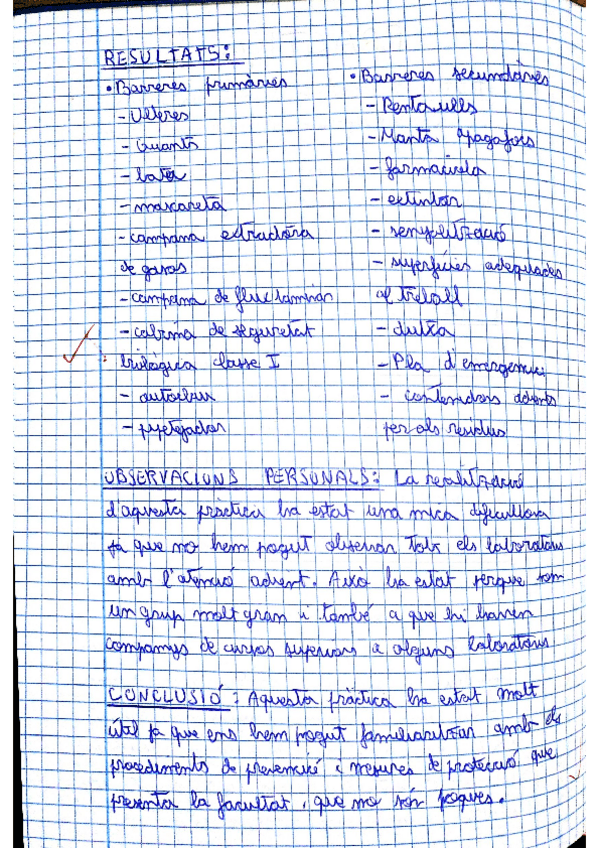 RESULTATS:
• Barreres primàries
- Ulleres
- Guants
- bata
- mascareta
- campana extractora
de gasos
- campana de flux laminar
- cabina de seguretat
biològica classe I
- autoclau
- pipetejador
• Barreres secundàries
- Rentaulls
- Manta apagafocs
- farmaciola
- extintor
- senyalització
- superfícies adequades
al treball
- dutxa
- Pla d'emergència
- contenidors adients
per als residus
OBSERVACIONS PERSONALS: La realització
d'aquesta pràctica ha estat una mica dificultosa
ja que no hem pogut observar tots els laboratoris
amb l'atenció adient. Això ha estat perque som
un grup molt gran i també a que hi havien
companys de cursos superiors a alguns laboratoris
CONCLUSIÓ: Aquesta pràctica ha estat molt
útil ja que ens hem pogut familiaritzar amb els
procediments de prevenció i mesures de protecció que
presenta la facultat, que no són poques.